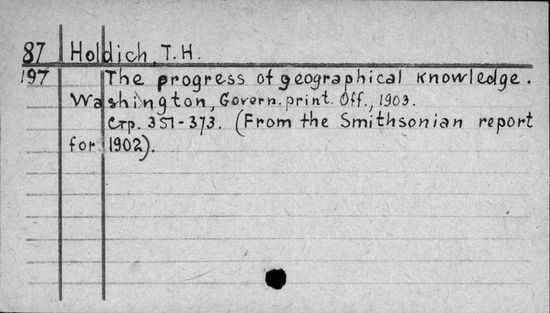 87 Holdich, T.H.
197 The progress of geographical knowledge.
Washington, Govern. print. Off., 1903.
Стр. 351-373. (From the Smithsonian report
for 1902).